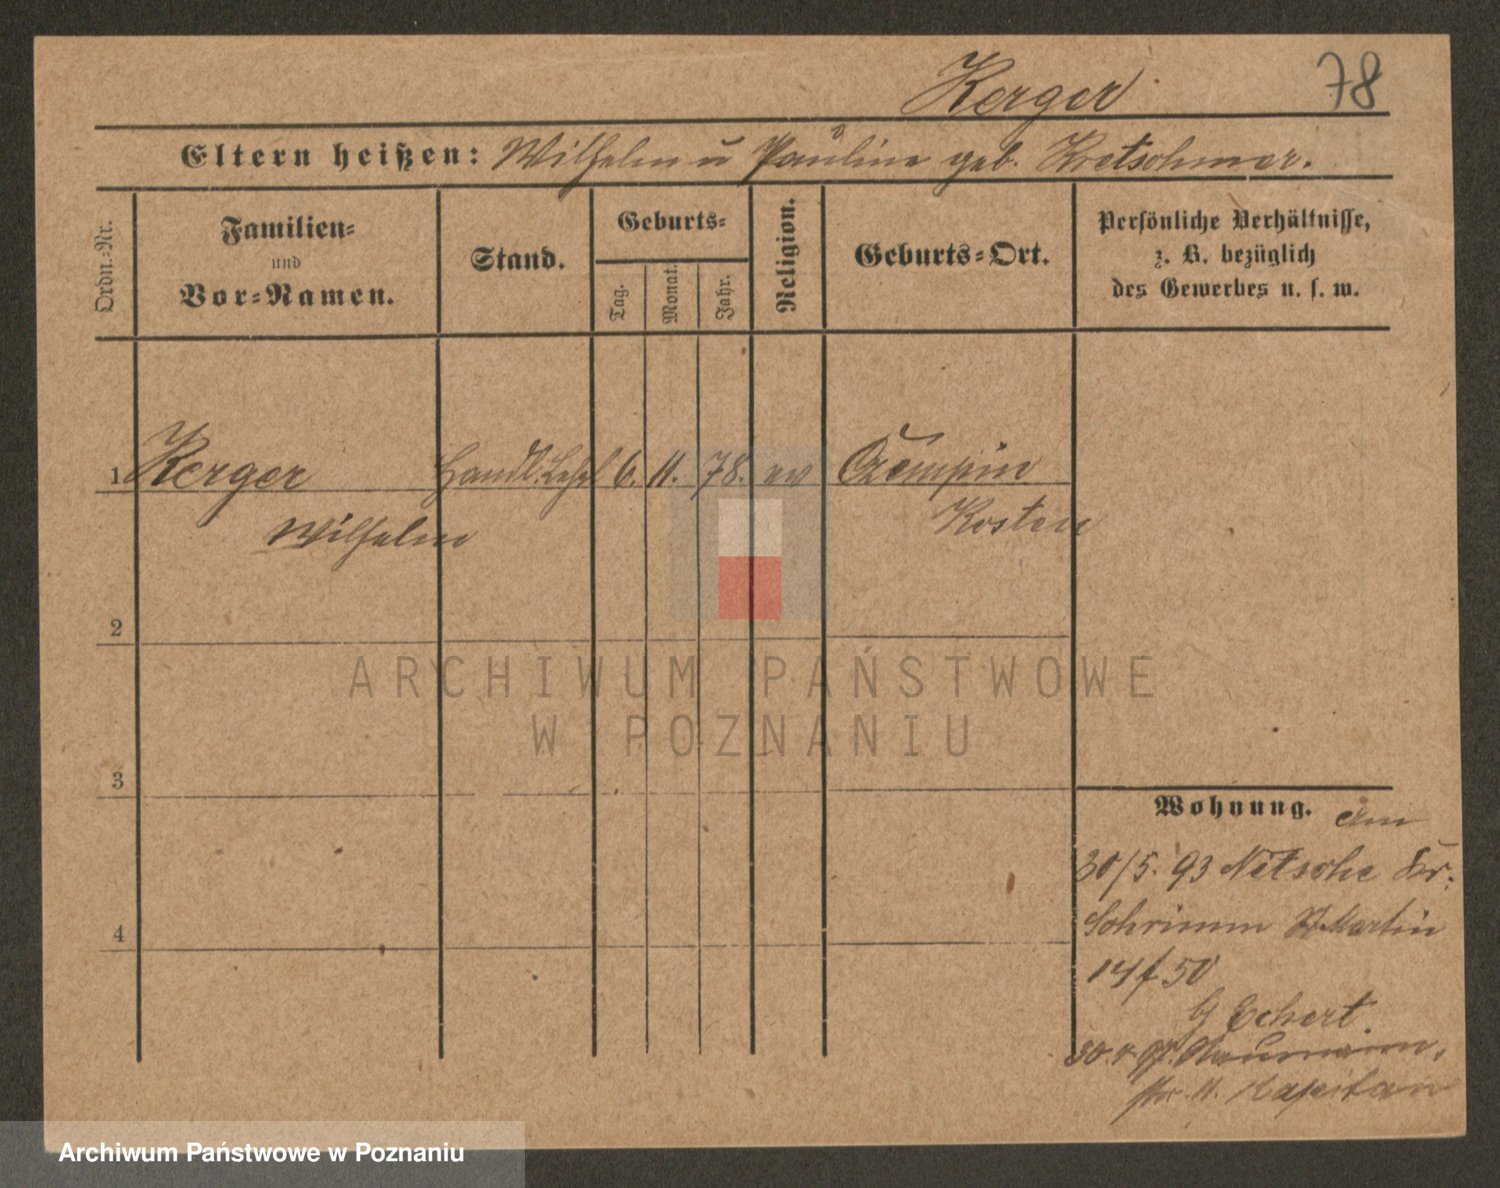 Kerger
78
Eltern heißen: Wilhelm u Pauline geb. Kretschmer.
Ordn.-Nr.
Familien-
und
Vor-Namen.
Stand.
Geburts-
Tag.
Monat.
Jahr.
Religion.
Geburts-Ort.
Persönliche Verhältnisse,
z. B. bezüglich
des Gewerbes u. s. w.
1 Kerger Handl. Lehrl 6. 11. 78. ev Czempin
Wilhelm Kosten
2
ARCHIWUM PAŃSTWOWE
W POZNANIU
3
Wohnung. am
30/5. 93 Netsche Kr.
Schrimm St Martin
14/50
G Eckert.
30. 97. Naumann
str. 11. Kapitan
4
Archiwum Państwowe w Poznaniu